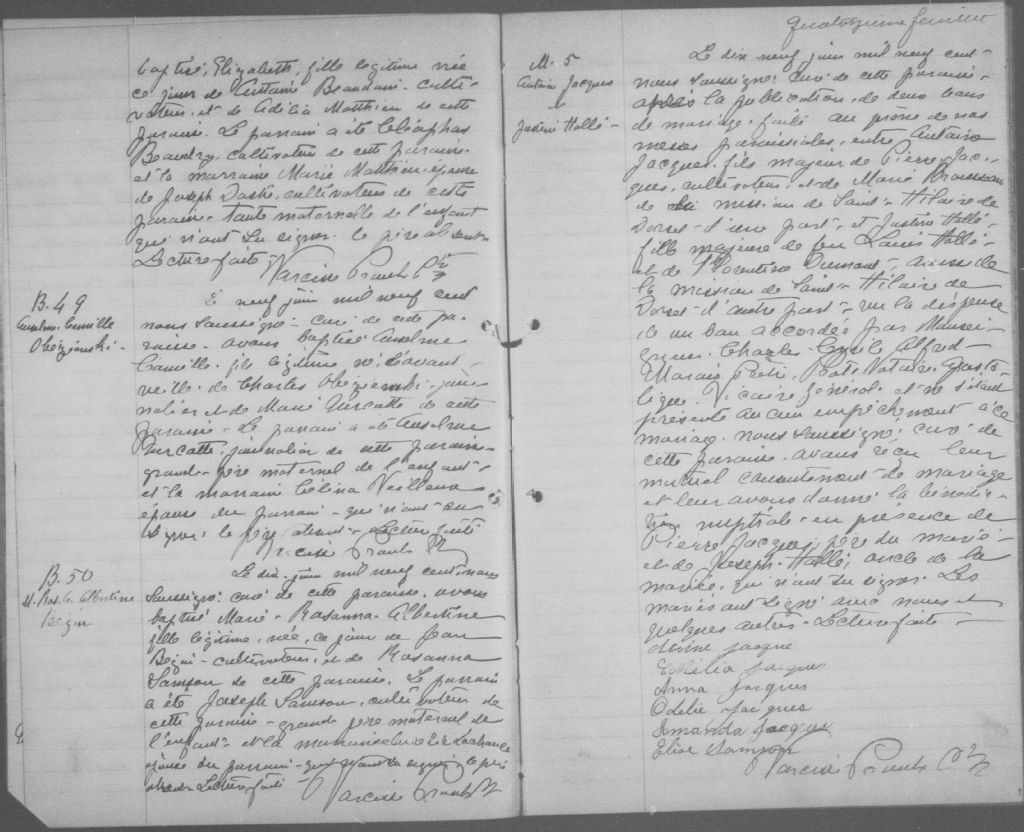 baptisé, Elizabeth, fille légitime née
ce jour de Antoine Beaudoin culti-
vateur, et de Adélia Matthieu de cette
paroisse. Le parrain a été Cléophas
Beaudry cultivateur de cette paroisse
et la marraine Marie Matthieu, épouse
de Joseph cultivateur de cette
paroisse, tante maternelle de l'enfant
qui n'ont su signer. le père absent.
Lecture faite.
Narcisse Proulx Ptre
B. 49
Anselme Camille
Obezienski -
Le neuf juin mil neuf cent
nous soussigné: curé de cette pa-
roisse - avons baptisé Anselme
Camille, fils légitime né l'avant
veille de Charles jour-
nalier et de Marie Turcotte de cette
paroisse - Le parrain a été Anselme
Turcotte, journalier de cette paroisse
grand-père maternel de l'enfant
et la marraine Célina Veilleux
épouse du parrain - qui n'ont su
signer: le père absent - Lecture faite
Narcisse Proulx Ptre
B. 50
M. Ros. Albertine
Bégin
Le dix juin mil neuf cent nous
soussigné: curé de cette paroisse, avons
baptisé Marie - Rosanna Albertine
fille légitime, née, ce jour de Jean
Bégin - cultivateur, et de Rosanna
Samson de cette paroisse. Le parrain
a été Joseph Samson, cultivateur de
cette paroisse - grand père maternel de
l'enfant et la marraine Lachance
épouse du parrain - qui n'ont su signer: le père
absent - Lecture faite -
Narcisse Proulx Ptre
Quatorzième feuillet
M. 5
Antoine Jacques
&
Justine Hallé -
Le dix neuf juin mil neuf cent
nous soussigné: curé de cette paroisse -
après la publication de deux bans
de mariage faite au prône de nos
messes paroissiales, entre Antoine
Jacques fils majeur de Pierre Jac-
ques, cultivateur, et de Marie Brousseau
de la mission de Saint - Hilaire de
Dorset d'une part, et Justine Hallé -
fille majeure de feu Louis Hallé -
et de Florentine Dumont - aussi de
la mission de Saint - Hilaire de
Dorset d'autre part - vu la dispense
d'un ban accordée par Monsei-
gneur Charles Cyrille Alfred
Marois Prêtre, Protonotaire Aposto-
lique, Vicaire Général et ne s'étant
présenté aucun empêchement à ce
mariage, nous soussigné: curé de
cette paroisse avons reçu leur
mutuel consentement de mariage
et leur avons donné la bénédic-
tion nuptiale en présence de
Pierre Jacques, père du marié -
et de Joseph Hallé, oncle de la
mariée, qui n'ont su signer. Les
mariés ont signé avec nous et
quelques autres - Lecture faite -
Jacques
Emilia Jacques
Anna Jacques
Odélie Jacques
Amanda Jacques
Elise Samson
Narcisse Proulx Ptre